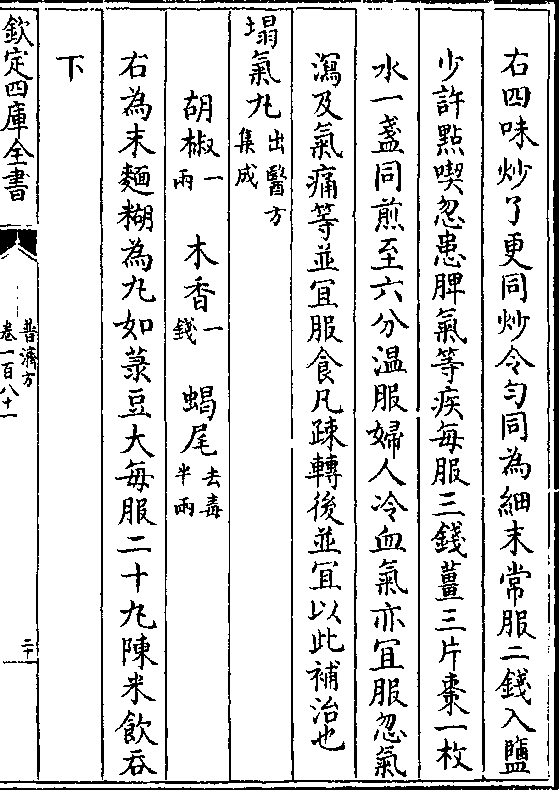 右四味炒了更同炒令勻同為細末常服二錢入鹽
少許點喫忽患脾氣等疾每服三錢薑三片棗一枚
水一盞同煎至六分温服婦人冷血氣亦宜服忽氣
瀉及氣痛等並宜服食凡疎轉後並宜以此補治也
塌氣九出醫方集成
胡椒一兩 木香一錢 蝎尾去毒半兩
右為末麵糊為九如菉豆大每服二十九陳米飲吞
下
欽定四庫全書
普濟方
卷一百八十一
二十